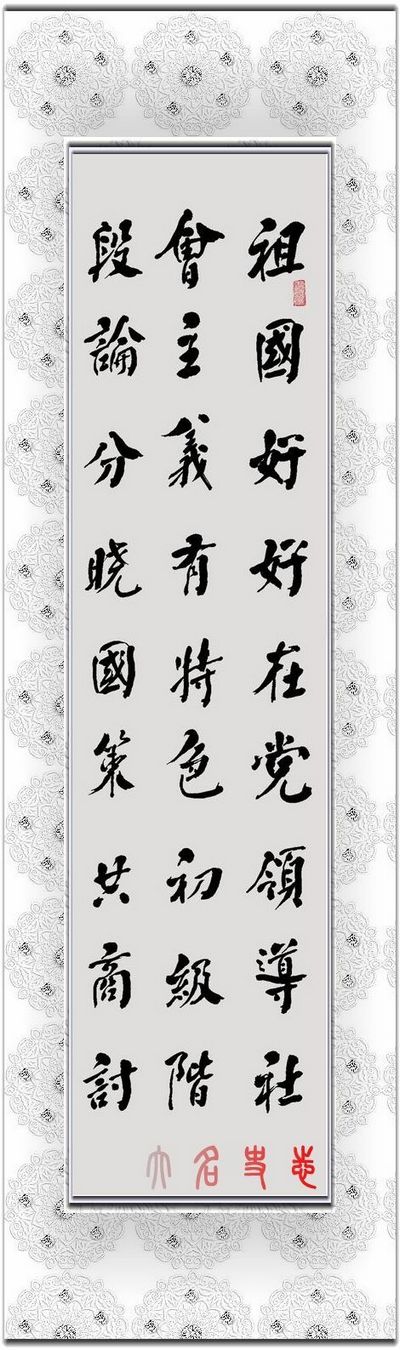 祖國好好在党領導社
會主義有特色初級階
段論分晓國策共商討